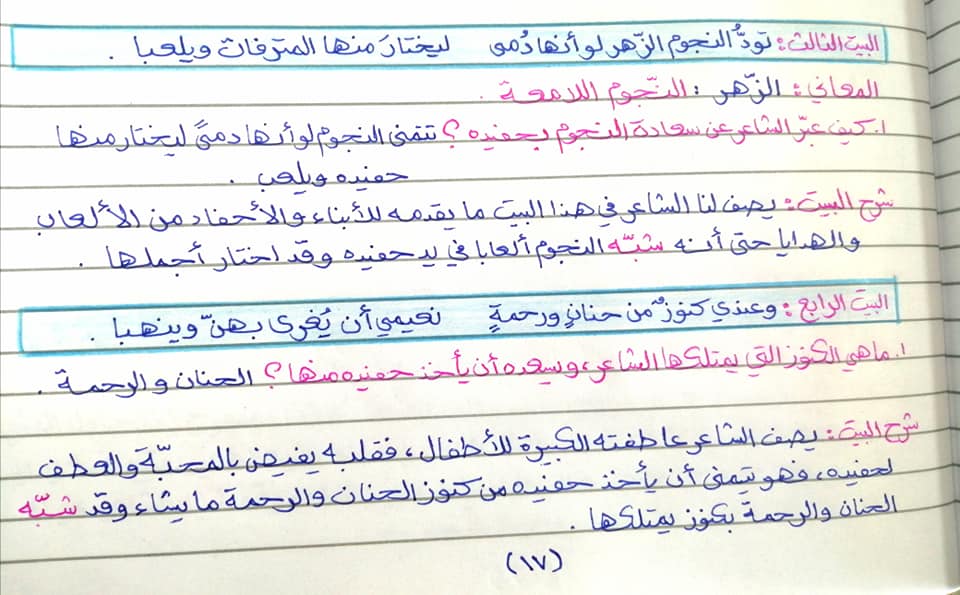 البيت الثالث: تودُّ النجوم الزّهر لو أنها دُمى ليختارَ منها المترفات ويلعبا .
المعاني: الزّهر: النّجوم اللامعة .
١. كيف عبّر الشاعر عن سعادة النجوم بحفيده؟ تتمنى النجوم لو أنها دمىً ليختار منها
حفيده ويلعب .
شرح البيت: يصف لنا الشاعر في هذا البيت ما يقدمه للأبناء والأحفاد من الألعاب
والهدايا حتى أنه شبّه النجوم ألعابا في يد حفيده وقد اختار أجملها .
البيت الرابع: وعندي كنوزٌ من حنانٍ ورحمةٍ نعيمي أن يُغرى بهنّ وينهبا .
١. ما هي الكنوز التي يمتلكها الشاعر، ويسعده أن يأخذ حفيده منها؟ الحنان والرحمة .
شرح البيت: يصف الشاعر عاطفته الكبيرة للأطفال، فقلبه يفيض بالمحبّة والعطف
لحفيده، فهو يتمنى أن يأخذ حفيده من كنوز الحنان والرحمة ما يشاء وقد شبّه
الحنان والرحمة بكنوز يمتلكها .
(١٧)